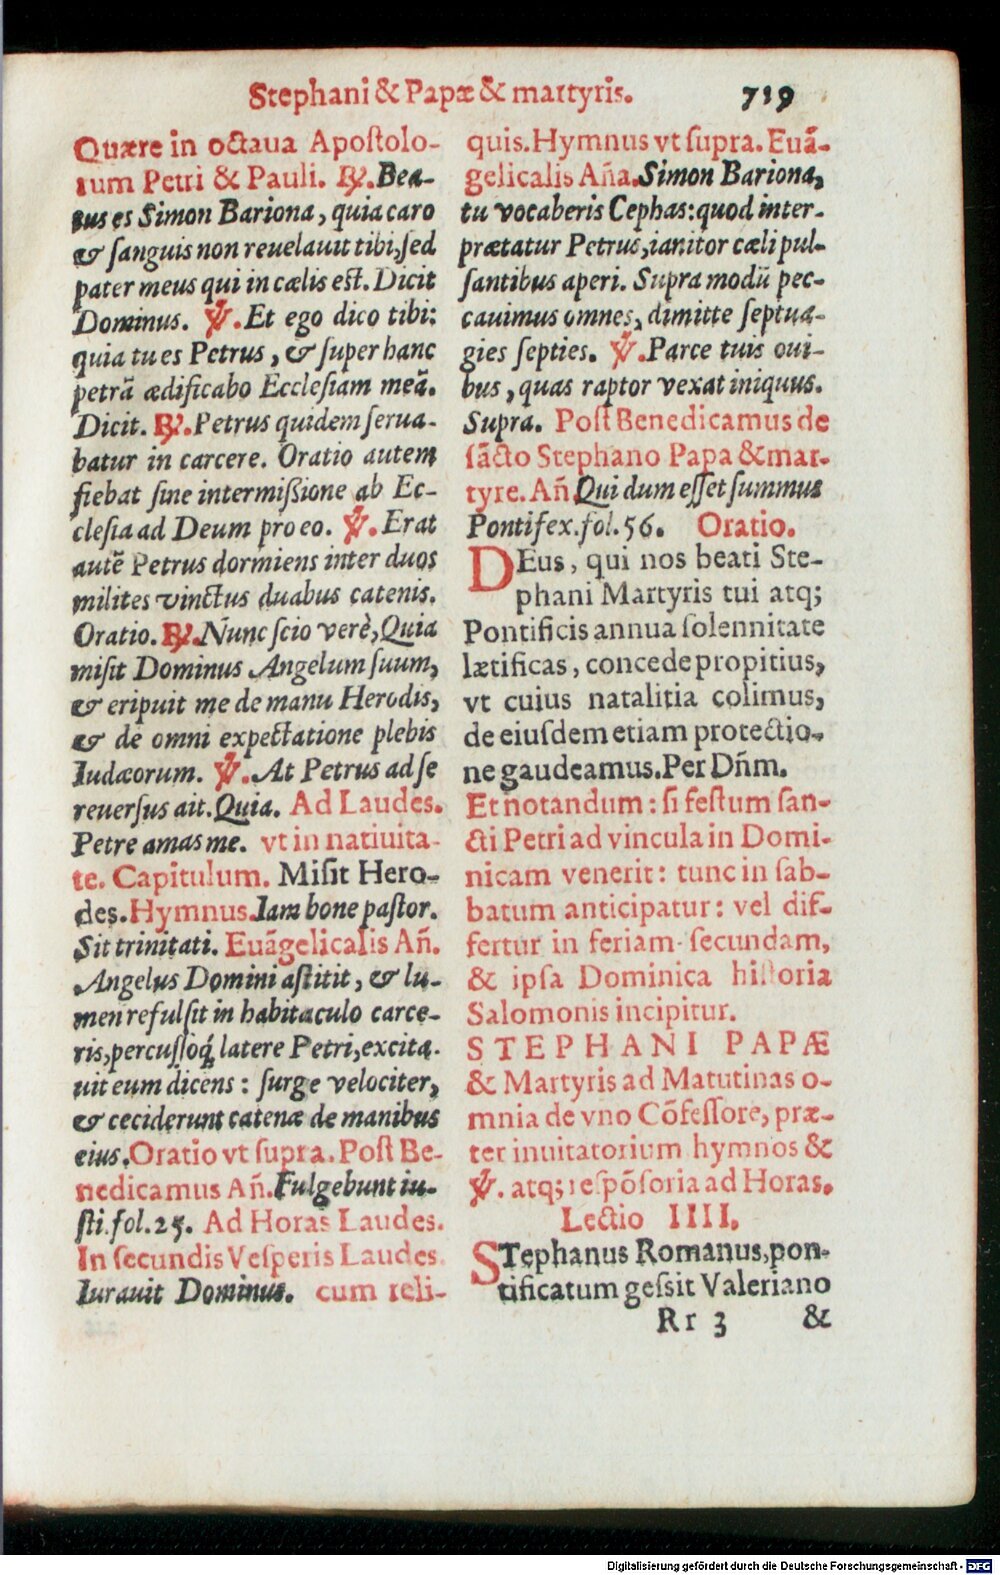 Stephani & Papæ & martyris. 719
Quære in octaua Apoſtolo-
rum Petri & Pauli. ℟. Bea-
tus es Simon Bariona, quia caro
& ſanguis non reuelauit tibi, ſed
pater meus qui in cælis eſt. Dicit
Dominus. ℣. Et ego dico tibi:
quia tu es Petrus, & ſuper hanc
petrā ædificabo Eccleſiam meā.
Dicit. ℟. Petrus quidem ſerua-
batur in carcere. Oratio autem
fiebat ſine intermißione ab Ec-
cleſia ad Deum pro eo. ℣. Erat
autē Petrus dormiens inter duos
milites vinctus duabus catenis.
Oratio. ℟. Nunc ſcio verè, Quia
miſit Dominus Angelum ſuum,
& eripuit me de manu Herodis,
& de omni expectatione plebis
Iudæorum. ℣. At Petrus ad ſe
reuerſus ait. Quia. Ad Laudes.
Petre amas me. vt in natiuita-
te. Capitulum. Miſit Hero-
des. Hymnus. Iam bone paſtor.
Sit trinitati. Euāgelicalis Añ.
Angelus Domini aſtitit, & lu-
men refulſit in habitaculo carce-
ris, percuſſoq́; latere Petri, excita-
uit eum dicens: ſurge velociter,
& ceciderunt catenæ de manibus
eius. Oratio vt ſupra. Poſt Be-
nedicamus Añ. Fulgebunt iu-
ſti. fol. 25. Ad Horas Laudes.
In ſecundis Veſperis Laudes.
Iurauit Dominus. cum reli-
quis. Hymnus vt ſupra. Euā-
gelicalis Aña. Simon Bariona,
tu vocaberis Cephas: quod inter-
prætatur Petrus, ianitor cæli pul-
ſantibus aperi. Supra modū pec-
cauimus omnes, dimitte ſeptua-
gies ſepties. ℣. Parce tuis oui-
bus, quas raptor vexat iniquus.
Supra. Poſt Benedicamus de
ſācto Stephano Papa & mar-
tyre. Añ. Qui dum eſſet ſummus
Pontifex. fol. 56. Oratio.
DEus, qui nos beati Ste-
phani Martyris tui atq;
Pontificis annua ſolennitate
lætificas, concede propitius,
vt cuius natalitia colimus,
de eiuſdem etiam protectio-
ne gaudeamus. Per Dñm.
Et notandum: ſi feſtum ſan-
cti Petri ad vincula in Domi-
nicam venerit: tunc in ſab-
batum anticipatur: vel dif-
fertur in feriam ſecundam,
& ipſa Dominica hiſtoria
Salomonis incipitur.
STEPHANI PAPÆ
& Martyris ad Matutinas o-
mnia de vno Cōfeſſore, præ-
ter inuitatorium hymnos &
℣. atq; reſpōſoria ad Horas.
Lectio IIII.
STephanus Romanus, pon-
tificatum geſsit Valeriano
Rr 3 &
Digitalisierung gefördert durch die Deutsche Forschungsgemeinschaft - DFG